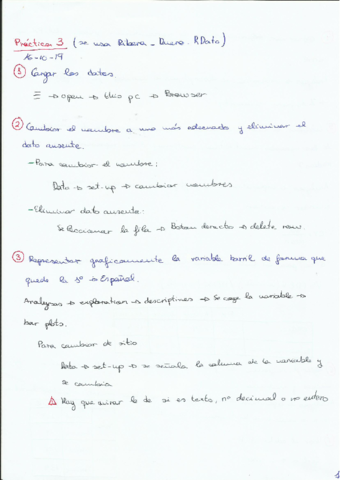 Práctica 3 (se usa Ribera_Duero.RData)
16-10-19
① Cargar los datos
☰ → open → this pc → Browser
② Cambiar el nombre a uno más adecuado y eliminar el
dato ausente.
-Para cambiar el nombre:
Data → set-up → cambiar nombres
-Eliminar dato ausente:
Seleccionar la fila → Boton derecho → delete row.
③ Representar graficamente la variable barril de forma que
quede la 1ª → Español.
Analyses → exploration → descriptives → Se coge la variable →
bar plots.
Para cambiar de sitio
Data → set-up → se señala la columna de la variable y
se cambia
⚠ Hay que mirar lo de si es texto, nº decimal o nº entero